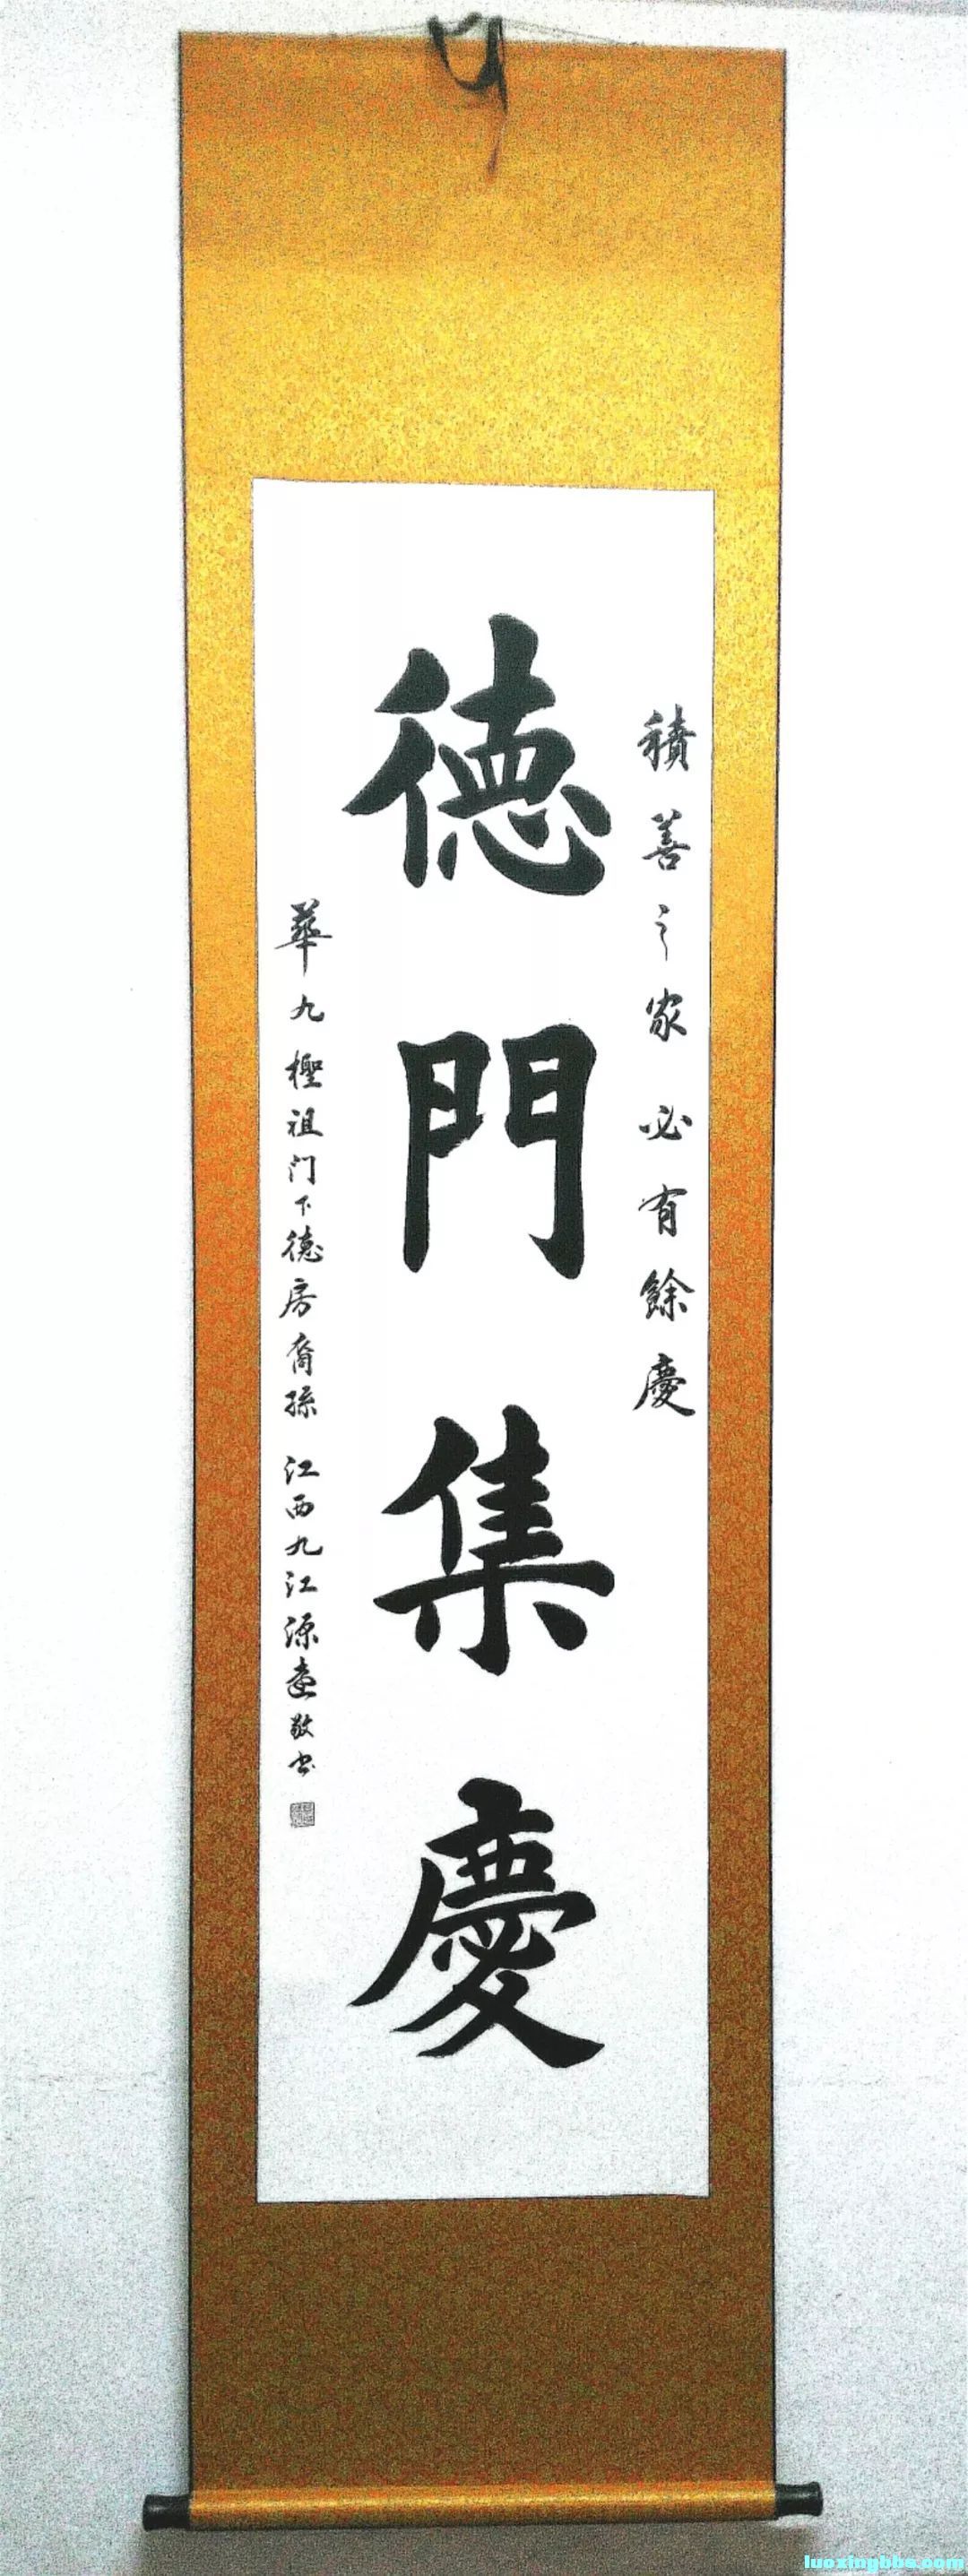 積善之家必有餘慶
德門集慶
華九檉祖门下德房裔孫 江西九江源壺敬书
luoxingbbs.com